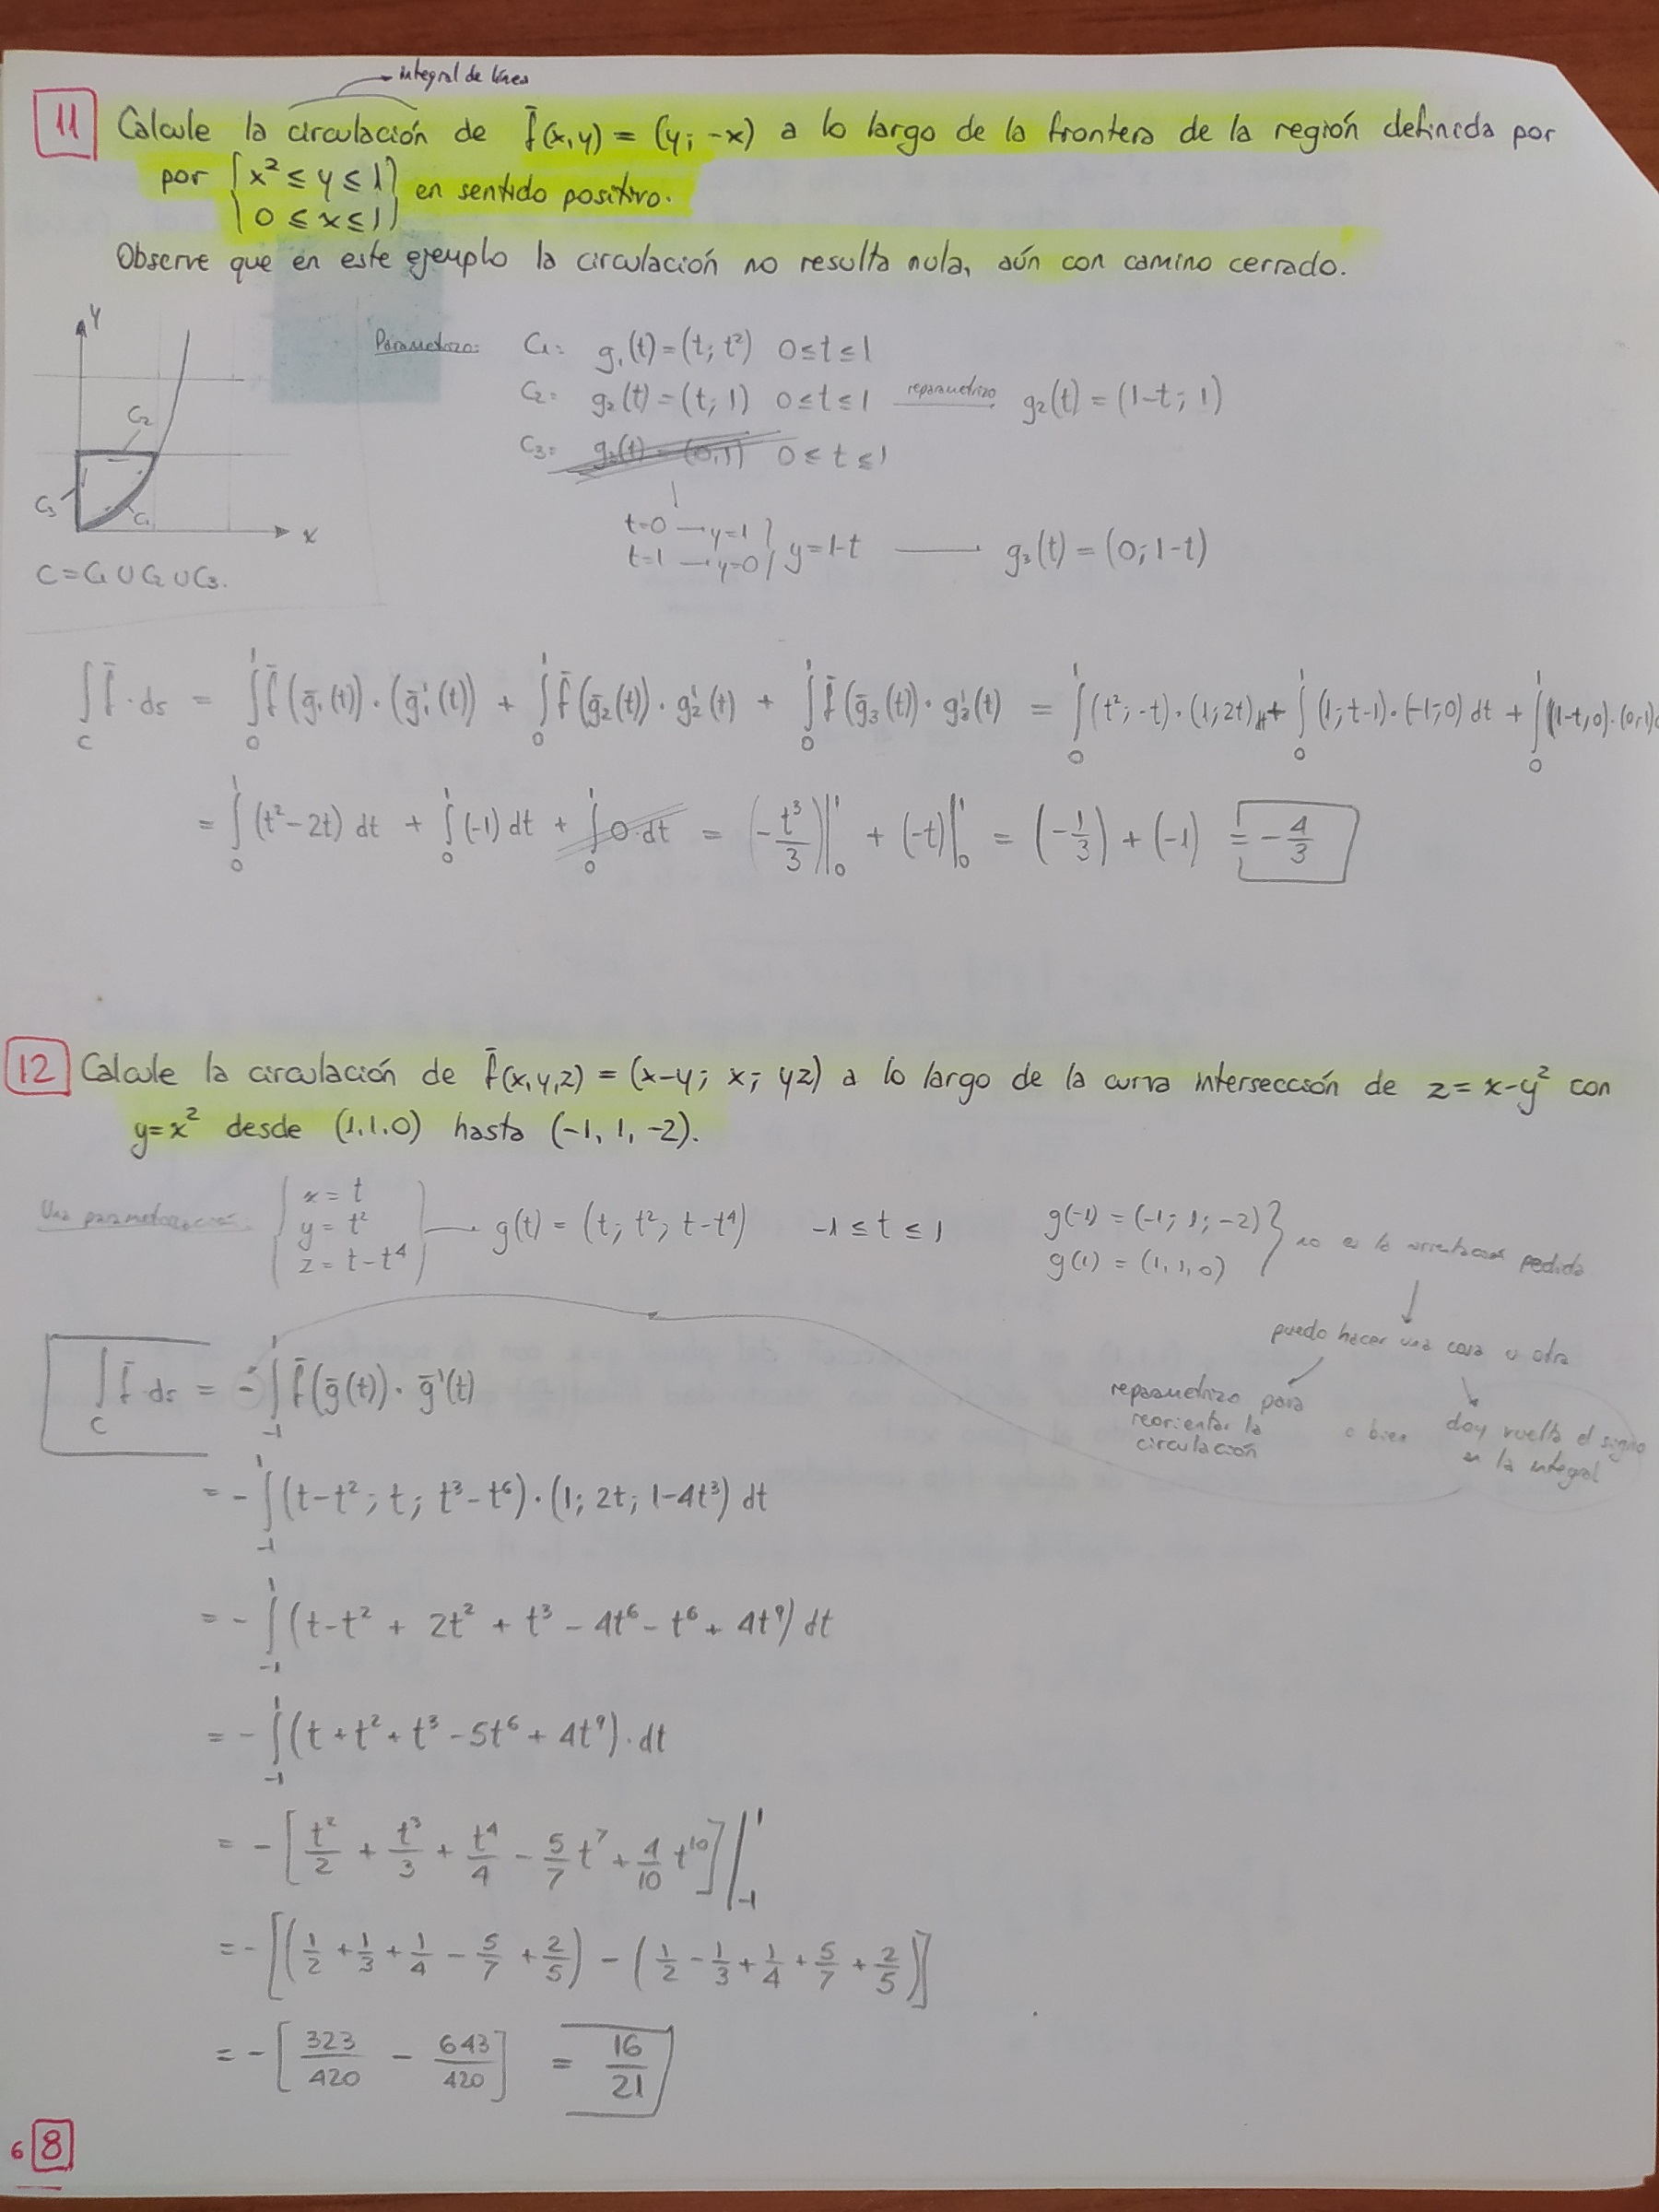 integral de línea
11 Calcule la circulación de f̄(x,y) = (y; -x) a lo largo de la frontera de la región definida por
por { x² ≤ y ≤ 1 } en sentido positivo.
{ 0 ≤ x ≤ 1 }
Observe que en este ejemplo la circulación no resulta nula, aún con camino cerrado.
y
C2
C3
C1
x
C = C1 ∪ C2 ∪ C3.
Parametrizo: C1: g₁(t) = (t; t²) 0 ≤ t ≤ 1
C2: g₂(t) = (t; 1) 0 ≤ t ≤ 1 reparametrizo g₂(t) = (1-t; 1)
C3: g₃(t) = (0,1) 0 ≤ t ≤ 1
t=0 → y=1 }
t=1 → y=0 } y=1-t — g₃(t) = (0; 1-t)
∫_C f̄·ds = ∫₀¹ f̄(ḡ₁(t))·(ḡ₁'(t)) + ∫₀¹ f̄(ḡ₂(t))·g₂'(t) + ∫₀¹ f̄(ḡ₃(t))·g₃'(t) = ∫₀¹ (t²; -t)·(1; 2t) dt + ∫₀¹ (1; t-1)·(-1; 0) dt + ∫₀¹ (1-t, 0)·(0,1)
= ∫₀¹ (t²-2t) dt + ∫₀¹ (-1) dt + ∫₀¹ 0 dt = (-t³/3)|₀¹ + (-t)|₀¹ = (-1/3) + (-1) = -4/3
12 Calcule la circulación de f̄(x,y,z) = (x-y; x; yz) a lo largo de la curva intersección de z = x-y² con
y=x² desde (1,1,0) hasta (-1, 1, -2).
Una parametrización: { x = t
y = t²
z = t-t⁴ } → g(t) = (t; t²; t-t⁴) -1 ≤ t ≤ 1
g(-1) = (-1; 1; -2) }
g(1) = (1, 1, 0) } no es la orientación pedida
puedo hacer una cosa u otra
reparametrizo para
reorientar la
circulación
o bien doy vuelta el signo
en la integral
∫_C f̄·ds = -∫₋₁¹ f̄(ḡ(t))·ḡ'(t)
= -∫₋₁¹ (t-t²; t; t³-t⁶)·(1; 2t; 1-4t³) dt
= -∫₋₁¹ (t-t² + 2t² + t³ - 4t⁶ - t⁶ + 4t⁹) dt
= -∫₋₁¹ (t + t² + t³ - 5t⁶ + 4t⁹)·dt
= -[t²/2 + t³/3 + t⁴/4 - 5/7 t⁷ + 4/10 t¹⁰]|₋₁¹
= -[(1/2 + 1/3 + 1/4 - 5/7 + 2/5) - (1/2 - 1/3 + 1/4 + 5/7 + 2/5)]
= -[323/420 - 643/420] = 16/21
6 8